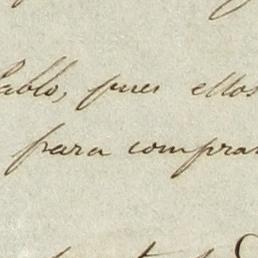 pablo, pues ellos
para comprar